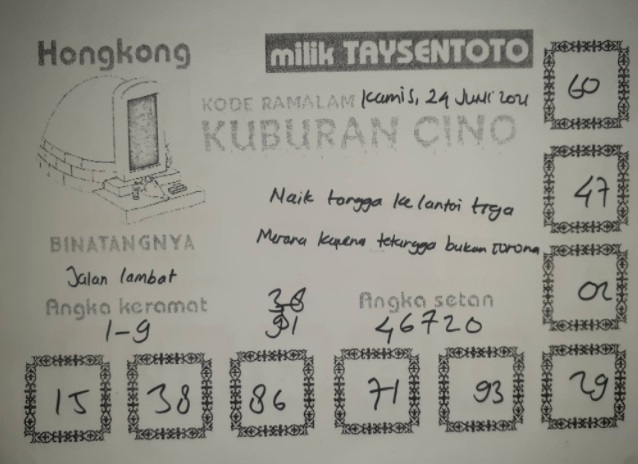 Hongkong
milik TAYSENTOTO
KODE RAMALAM Kamis, 24 Juni 2021
KUBURAN CINO
60
47
02
29
Naik tangga ke lantai tiga
Merana karena tetangga bukan corona
BINATANGNYA
Jalan lambat
Angka keramat
1-9
38
91
Angka setan
46720
15 38 86 71 93